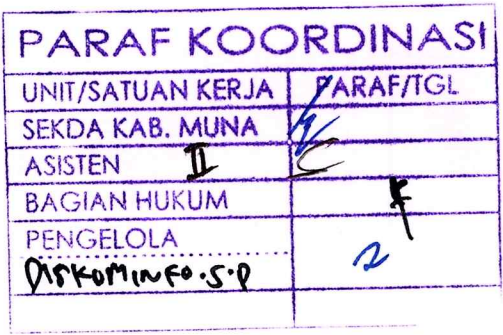 PARAF KOORDINASI
UNIT/SATUAN KERJA PARAF/TGL
SEKDA KAB. MUNA
ASISTEN II
BAGIAN HUKUM
PENGELOLA
DISKOMINFO.S.P